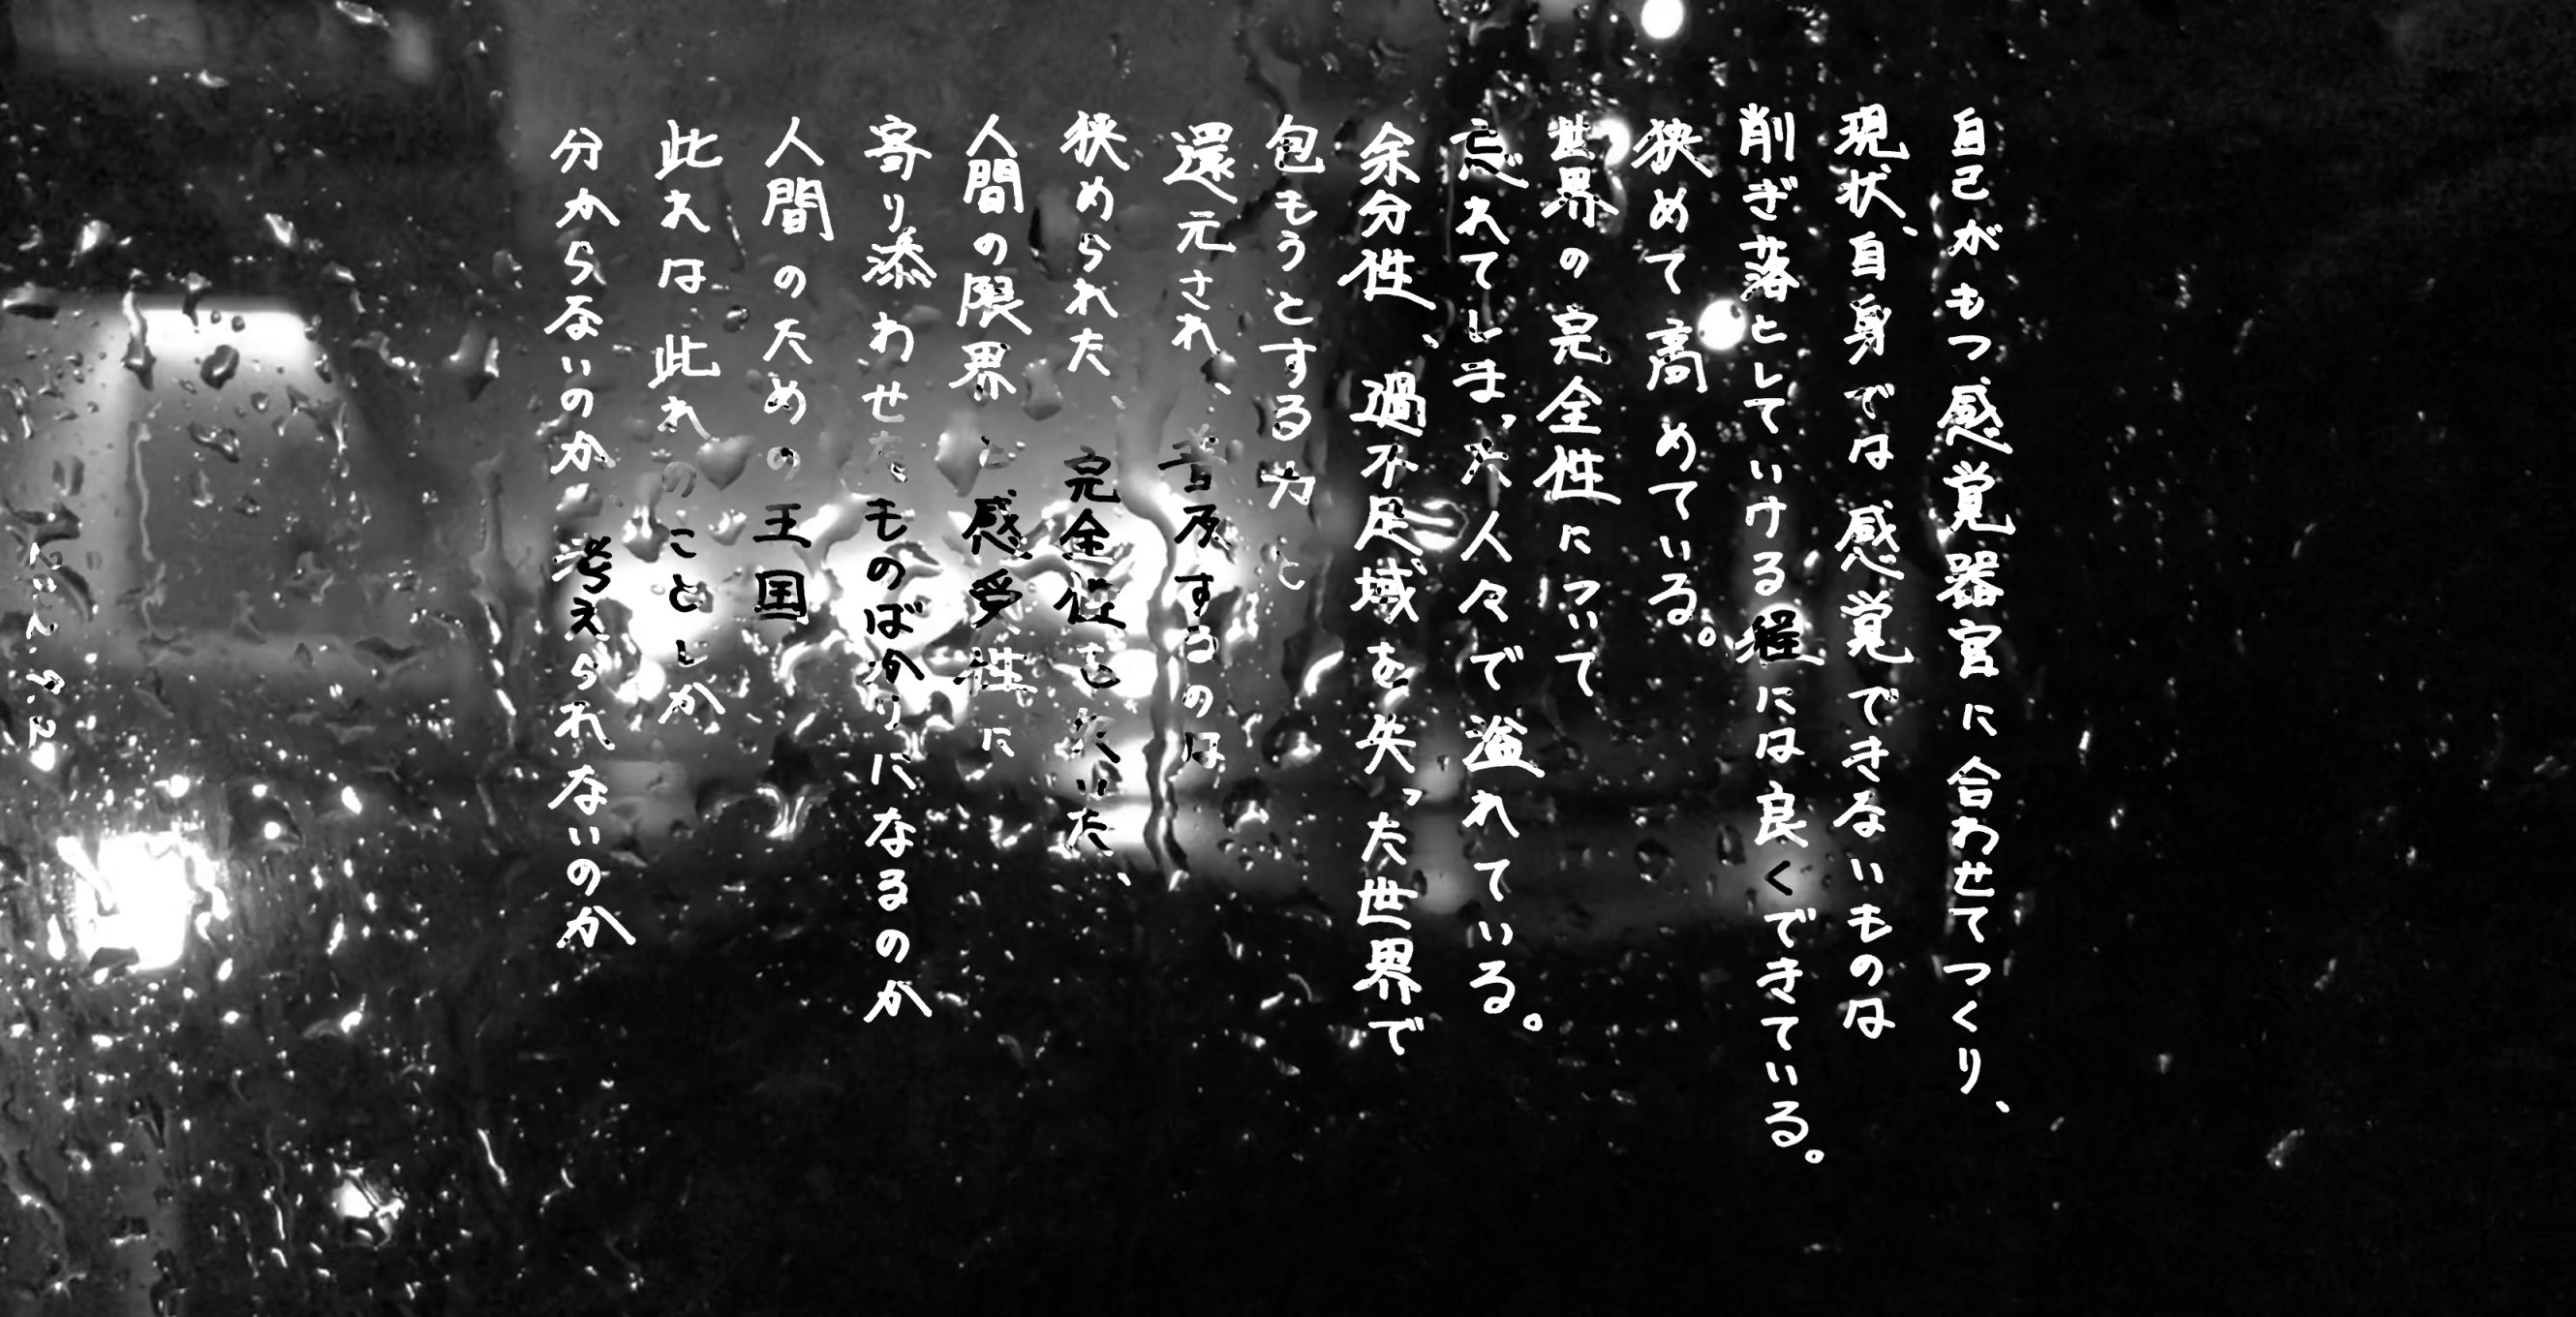 自己がもつ感覚器官に合わせてつくり、
現状、自身では感覚できないものは
削ぎ落としていける程には良くできている。
狭めて高めている。
世界の完全性について
忘れてしまった人々で溢れている。
余分性、過不足域を失った世界で
包もうとする力と
還元され、普及するのは
狭められた、完全性を欠いた、
人間の限界と感受性に
寄り添わせたものばかりになるのか
人間のための王国
此れは此れのことしか
分からないのか 考えられないのか